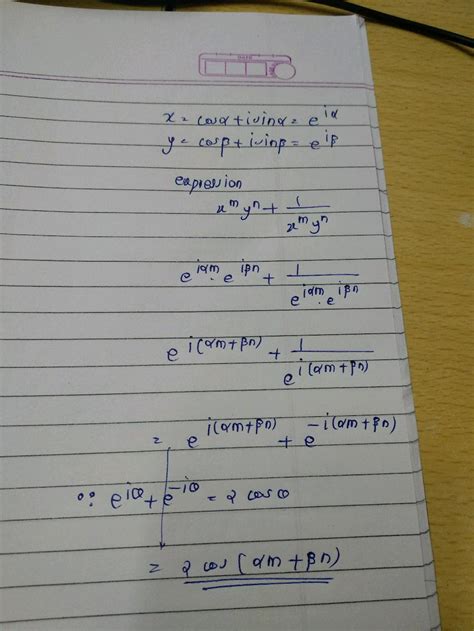 x = cosα + isinα = e^{iα}
y = cosβ + isinβ = e^{iβ}
expression
x^m y^n + 1/(x^m y^n)
e^{iαm} . e^{iβn} + 1/(e^{iαm} . e^{iβn})
e^{i(αm+βn)} + 1/(e^{i(αm+βn)})
= e^{i(αm+βn)} + e^{-i(αm+βn)}
∵ e^{iθ} + e^{-iθ} = 2 cosθ
= 2 cos(αm + βn)